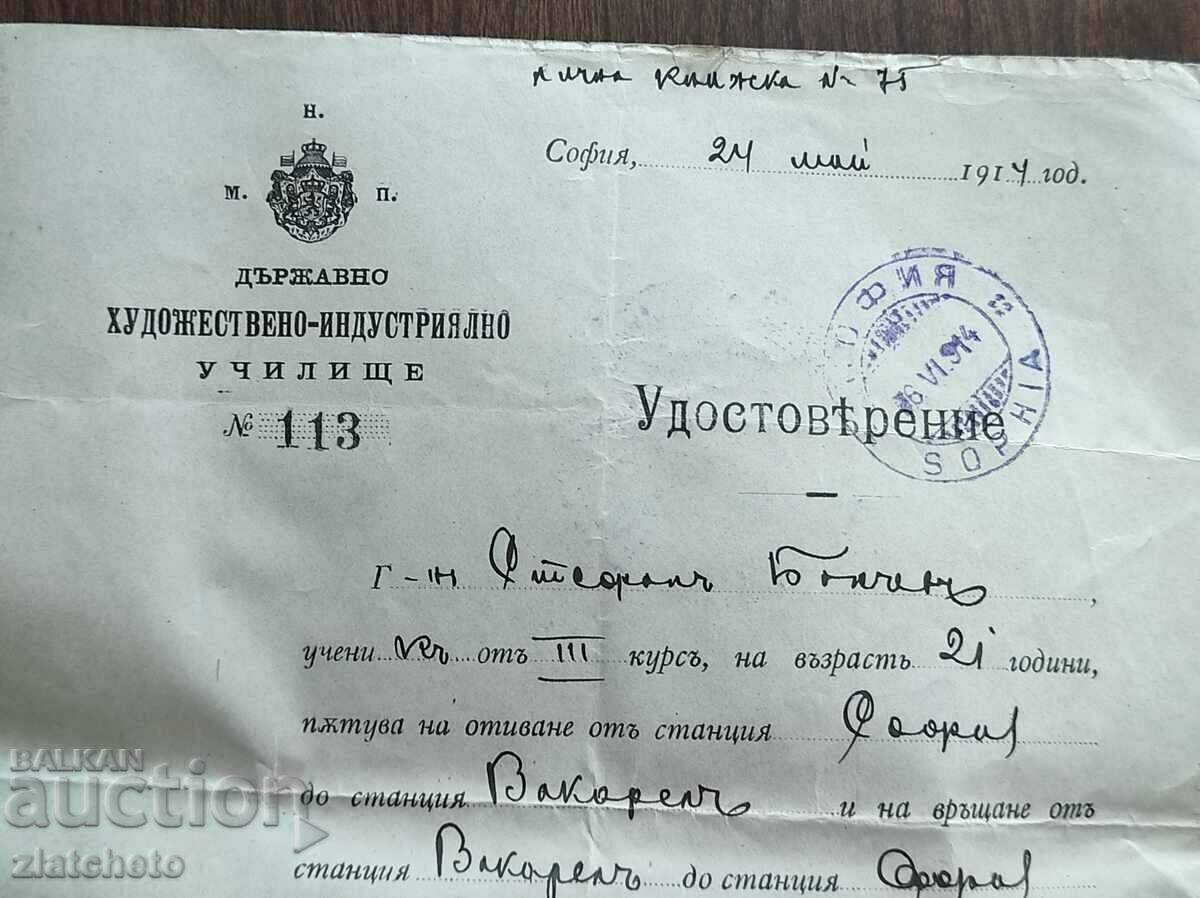 лична книжка № 75
Н.
М. П.
София, 24 май 1914 год.
ДЪРЖАВНО
ХУДОЖЕСТВЕНО-ИНДУСТРИЯЛНО
УЧИЛИЩЕ
№ 113
СОФИЯ
6 VI.914
SOPHIA
Удостовѣрение
Г-нъ Стефанъ,
ученикъ отъ III курсъ, на възрасть 21 години,
пѫтува на отиване отъ станция София
до станция Вакарелъ и на връщане отъ
станция Вакарелъ до станция София
BALKAN
auction
zlatcheto